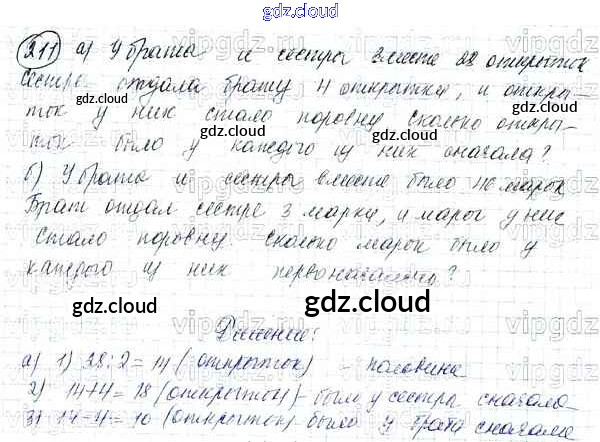 gdz.cloud
211) а) У брата и сестры вместе 28 открыток
Сестра отдала брату 4 открытки, и откры-
gdz.cloud gdz.cloud
ток у них стало поровну Сколько откры-
gdz.cloud gdz.cloud
ток было у каждого из них сначала?
б) У брата и сестры вместе было 40 марок
Брат отдал сестре 3 марки, и марок у них
стало поровну. Сколько марок было у
каждого из них первоначально?
gdz.cloud gdz.cloud
Решение:
а) 1) 28:2=14 (открыток) - половина
2) 14+4=18 (открыток) - было у сестры сначала
3) 14-4=10 (открыток) - было у брата сначала